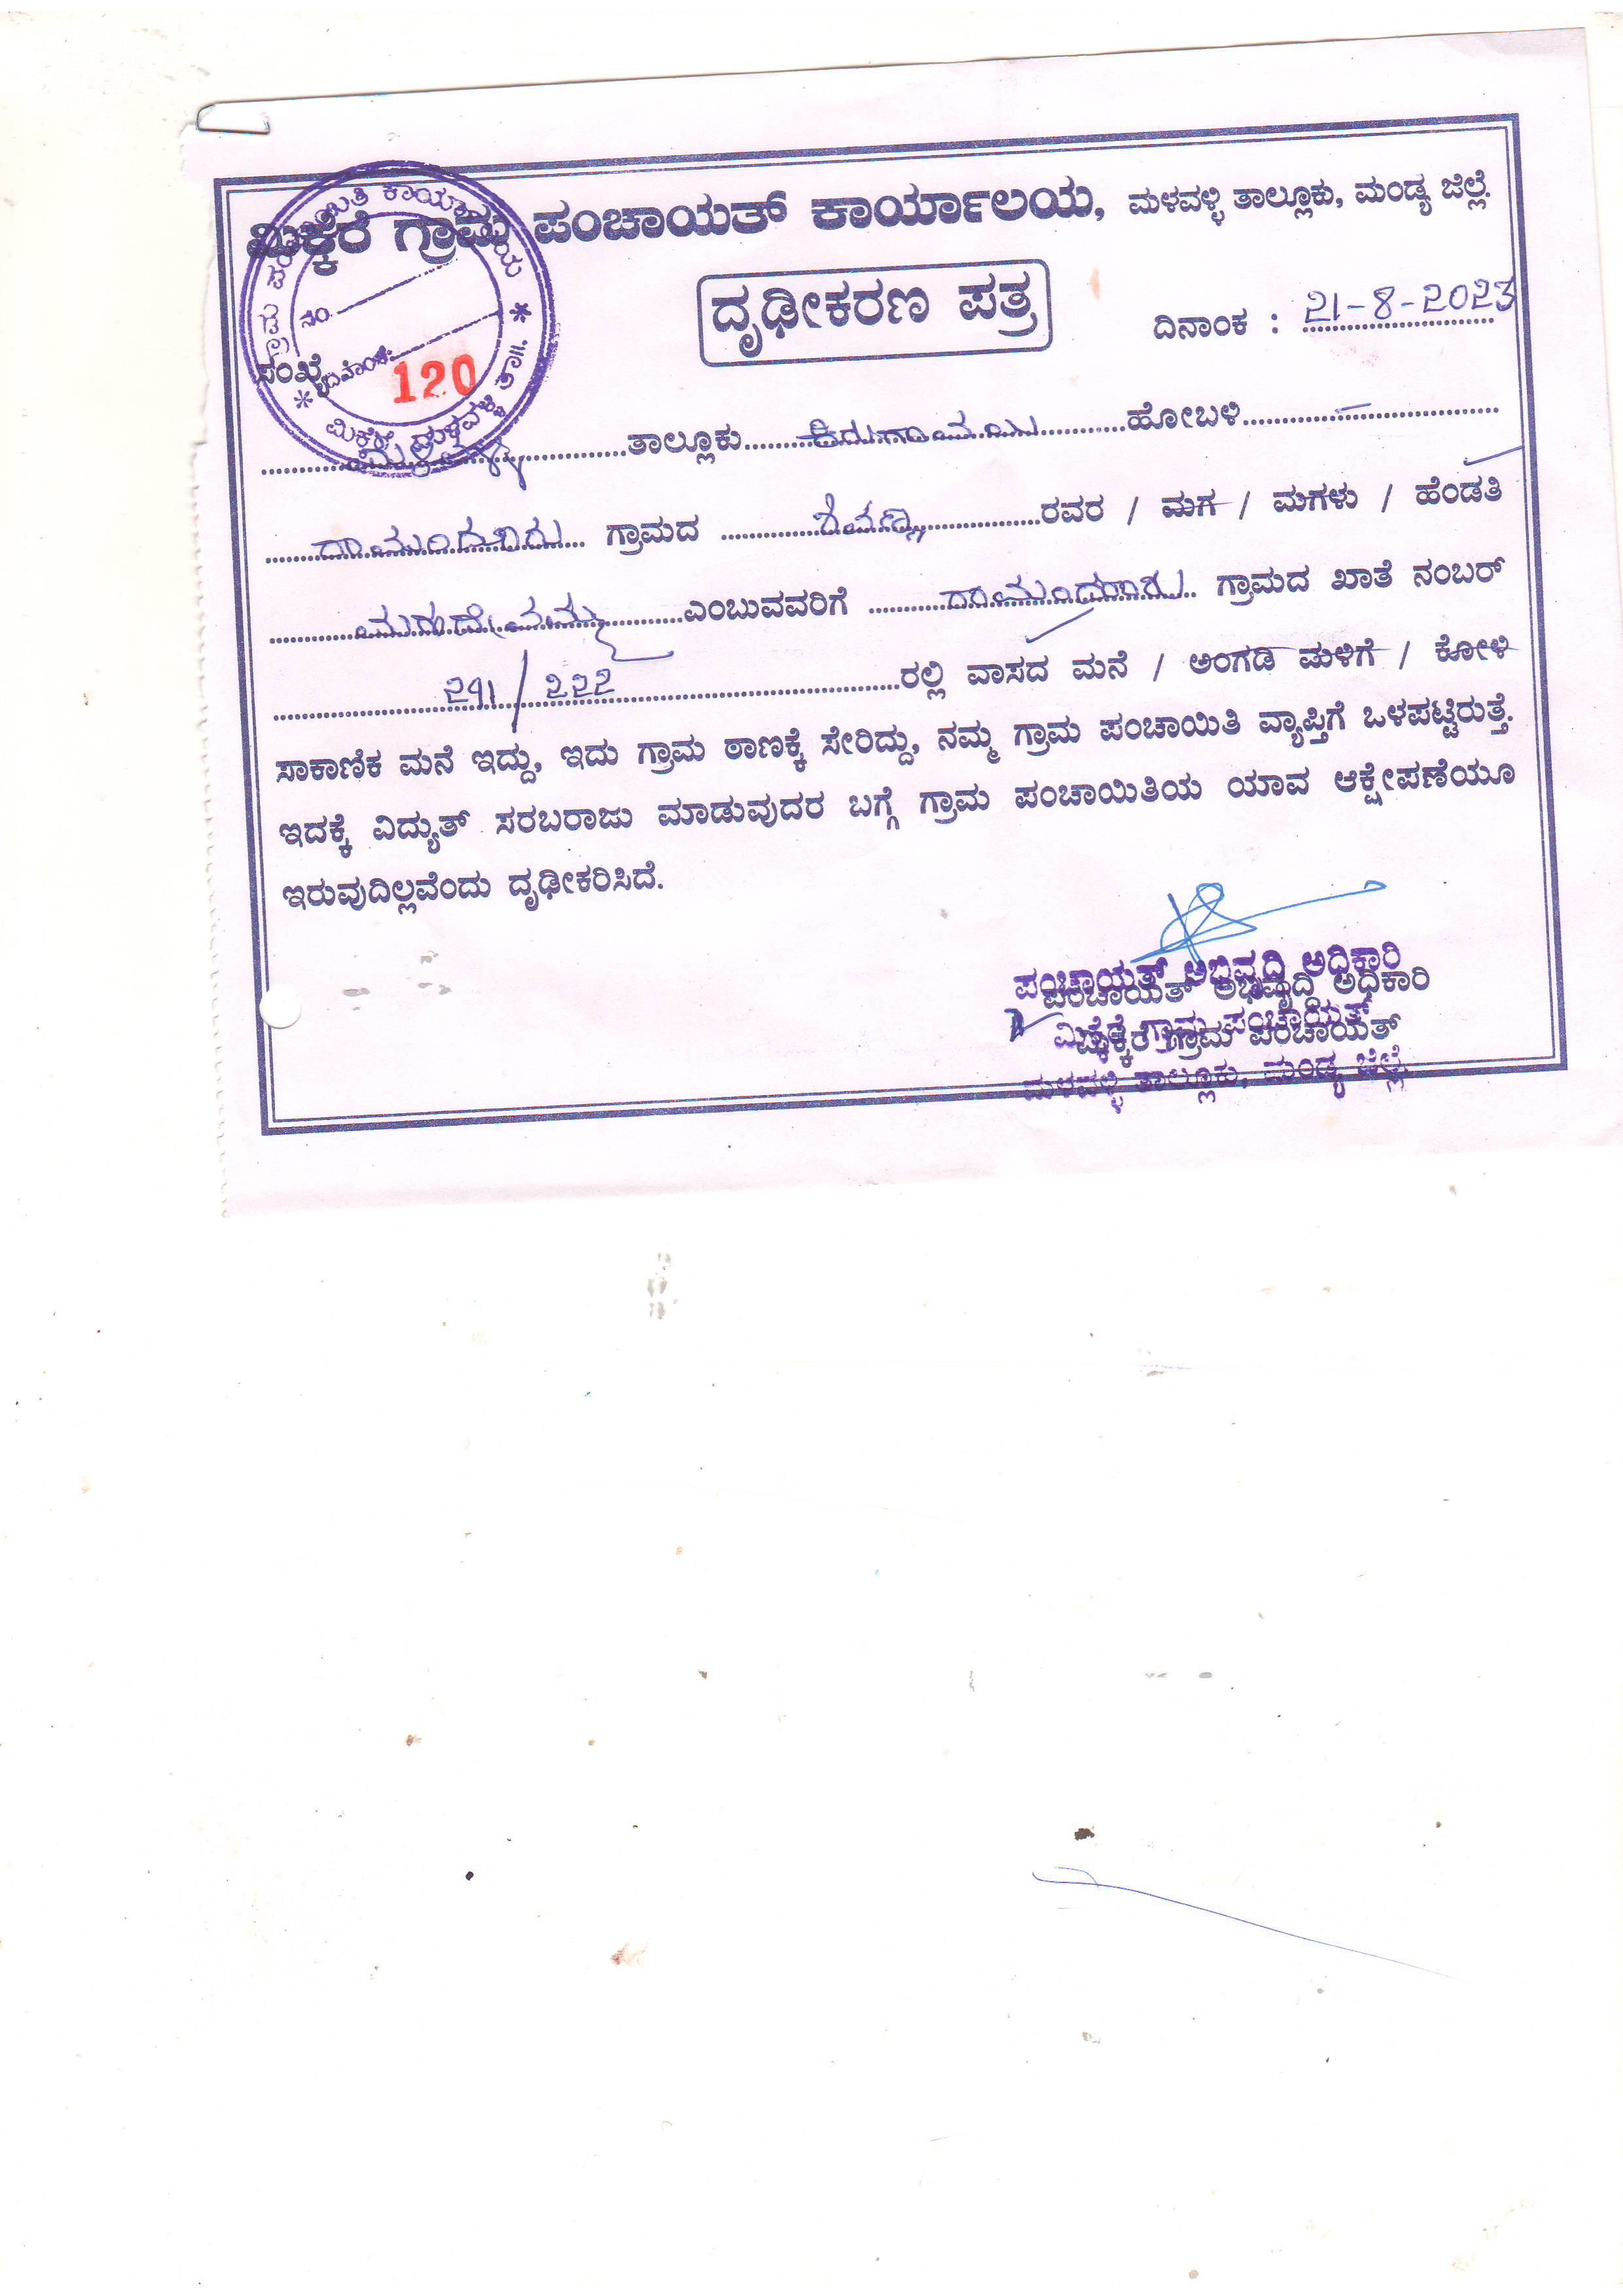 ಮಿಕ್ಕೆರೆ ಗ್ರಾಮ ಪಂಚಾಯತ್ ಕಾರ್ಯಾಲಯ, ಮಳವಳ್ಳಿ ತಾಲ್ಲೂಕು, ಮಂಡ್ಯ ಜಿಲ್ಲೆ.
ದೃಢೀಕರಣ ಪತ್ರ
ದಿನಾಂಕ : 21-8-2023
ಸಂಖ್ಯೆ 120
ಮಳವಳ್ಳಿ ತಾಲ್ಲೂಕು ಕಿರುಗಾವಲು ಹೋಬಳಿ
ಗ್ರಾಮದ ಶಿವಣ್ಣ ರವರ / ಮಗ / ಮಗಳು / ಹೆಂಡತಿ
ಮಹದೇವಮ್ಮ ಎಂಬುವವರಿಗೆ ಗ್ರಾಮದ ಖಾತೆ ನಂಬರ್
291/222 ರಲ್ಲಿ ವಾಸದ ಮನೆ / ಅಂಗಡಿ ಮಳಿಗೆ / ಕೋಳಿ
ಸಾಕಾಣಿಕ ಮನೆ ಇದ್ದು, ಇದು ಗ್ರಾಮ ಠಾಣಕ್ಕೆ ಸೇರಿದ್ದು, ನಮ್ಮ ಗ್ರಾಮ ಪಂಚಾಯಿತಿ ವ್ಯಾಪ್ತಿಗೆ ಒಳಪಟ್ಟಿರುತ್ತೆ.
ಇದಕ್ಕೆ ವಿದ್ಯುತ್ ಸರಬರಾಜು ಮಾಡುವುದರ ಬಗ್ಗೆ ಗ್ರಾಮ ಪಂಚಾಯಿತಿಯ ಯಾವ ಆಕ್ಷೇಪಣೆಯೂ
ಇರುವುದಿಲ್ಲವೆಂದು ದೃಢೀಕರಿಸಿದೆ.
ಪಂಚಾಯತ್ ಅಭಿವೃದ್ಧಿ ಅಧಿಕಾರಿ
ಪಂಚಾಯತ್ ಅಭಿವೃದ್ಧಿ ಅಧಿಕಾರಿ
ಮಿಕ್ಕೆರೆ ಗ್ರಾಮ ಪಂಚಾಯತ್
ಮಿಕ್ಕೆರೆ ಗ್ರಾಮ ಪಂಚಾಯತ್
ಮಳವಳ್ಳಿ ತಾಲ್ಲೂಕು, ಮಂಡ್ಯ ಜಿಲ್ಲೆ.